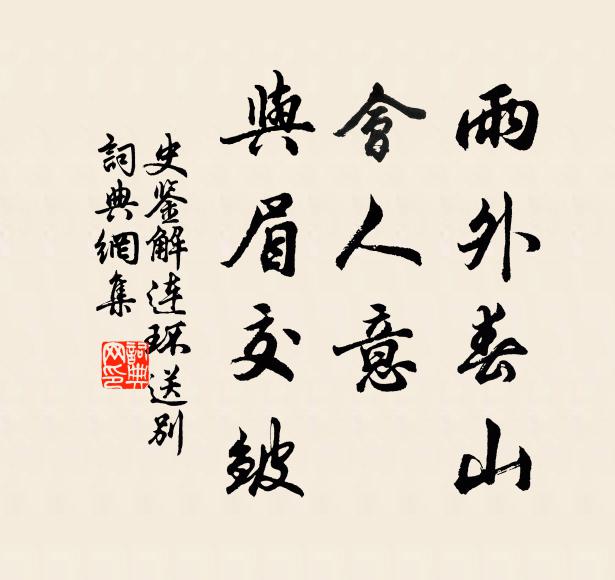 雨外春山
會人意
與眉交皴
史鉴解连环送别
詞典網集
詞典
网印